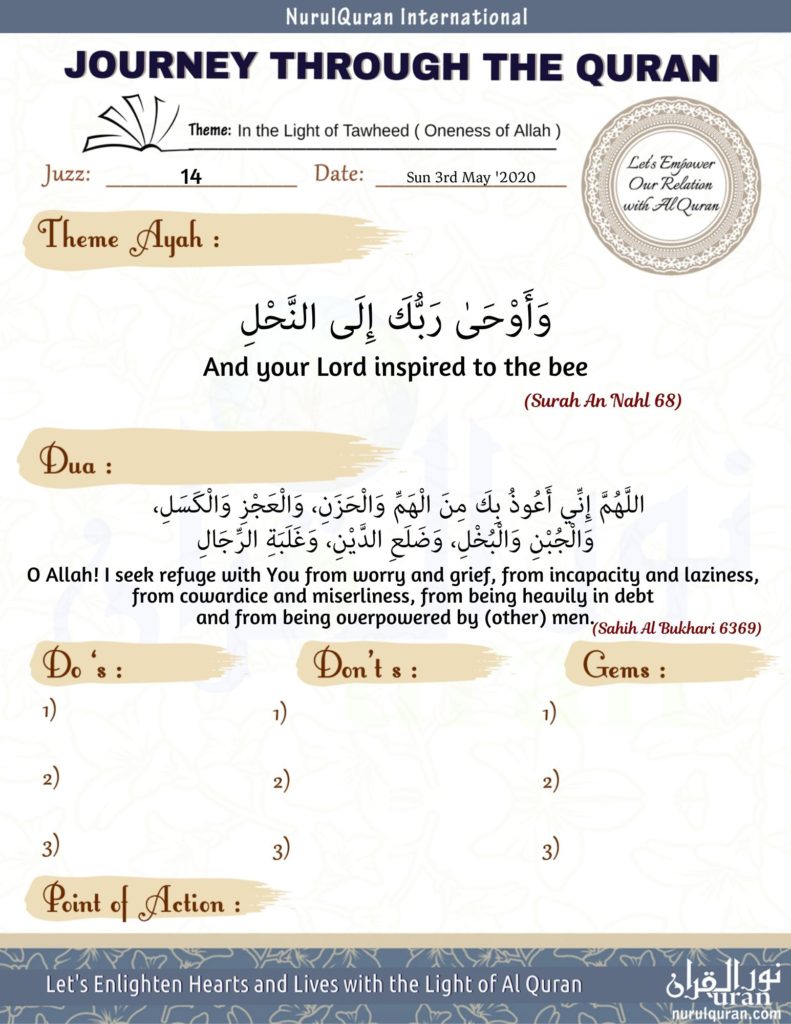 NurulQuran International
JOURNEY THROUGH THE QURAN
Theme: In the Light of Tawheed ( Oneness of Allah )
Juzz: 14 Date: Sun 3rd May '2020
Let's Empower
Our Relation
with Al Quran
Theme Ayah :
وَأَوْحَىٰ رَبُّكَ إِلَى النَّحْلِ
And your Lord inspired to the bee
(Surah An Nahl 68)
Dua :
اللَّهُمَّ إِنِّي أَعُوذُ بِكَ مِنَ الْهَمِّ وَالْحَزَنِ، وَالْعَجْزِ وَالْكَسَلِ،
وَالْجُبْنِ وَالْبُخْلِ، وَضَلَعِ الدَّيْنِ، وَغَلَبَةِ الرِّجَالِ
O Allah! I seek refuge with You from worry and grief, from incapacity and laziness,
from cowardice and miserliness, from being heavily in debt
and from being overpowered by (other) men.
(Sahih Al Bukhari 6369)
Do 's : Don't s : Gems :
1) 1) 1)
2) 2) 2)
3) 3) 3)
Point of Action :
Let's Enlighten Hearts and Lives with the Light of Al Quran
نور القرآن
uran
nurulquran.com